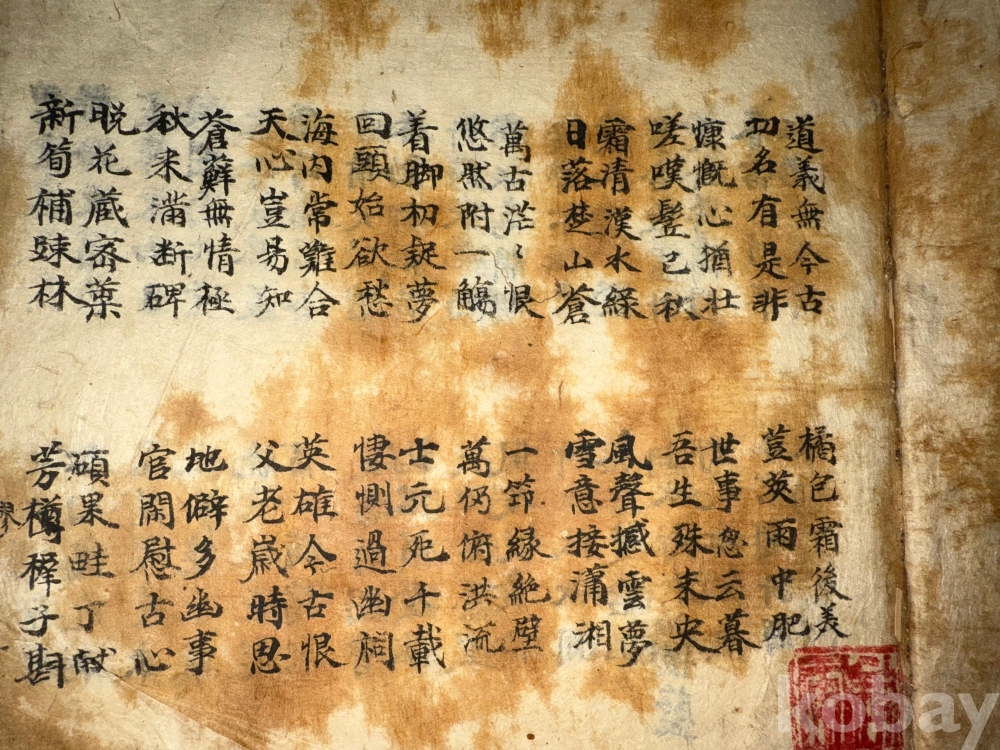 道義無今古
功名有是非
慷慨心猶壯
嗟嘆已秋
霜清漢水綠
日落楚山蒼
萬古茫〻恨
悠然附一觴
着脚初疑夢
回頭始欲愁
海內常難合
天心豈易知
蒼蘚無情極
秋来滿断碑
脱花蔵宻葉
新筍補踈林
橘色霜後美
荳莢雨中肥
世事忽云暮
吾生殊未央
風聲撼雲夢
雪意接瀟湘
一筇縁絶壁
萬仭俯洪流
士元死千載
悽惻過幽祠
英雄今古恨
父老歳時思
地僻多幽事
官閑慰古心
碩果畦丁献
芳樽稺子斟
kobay